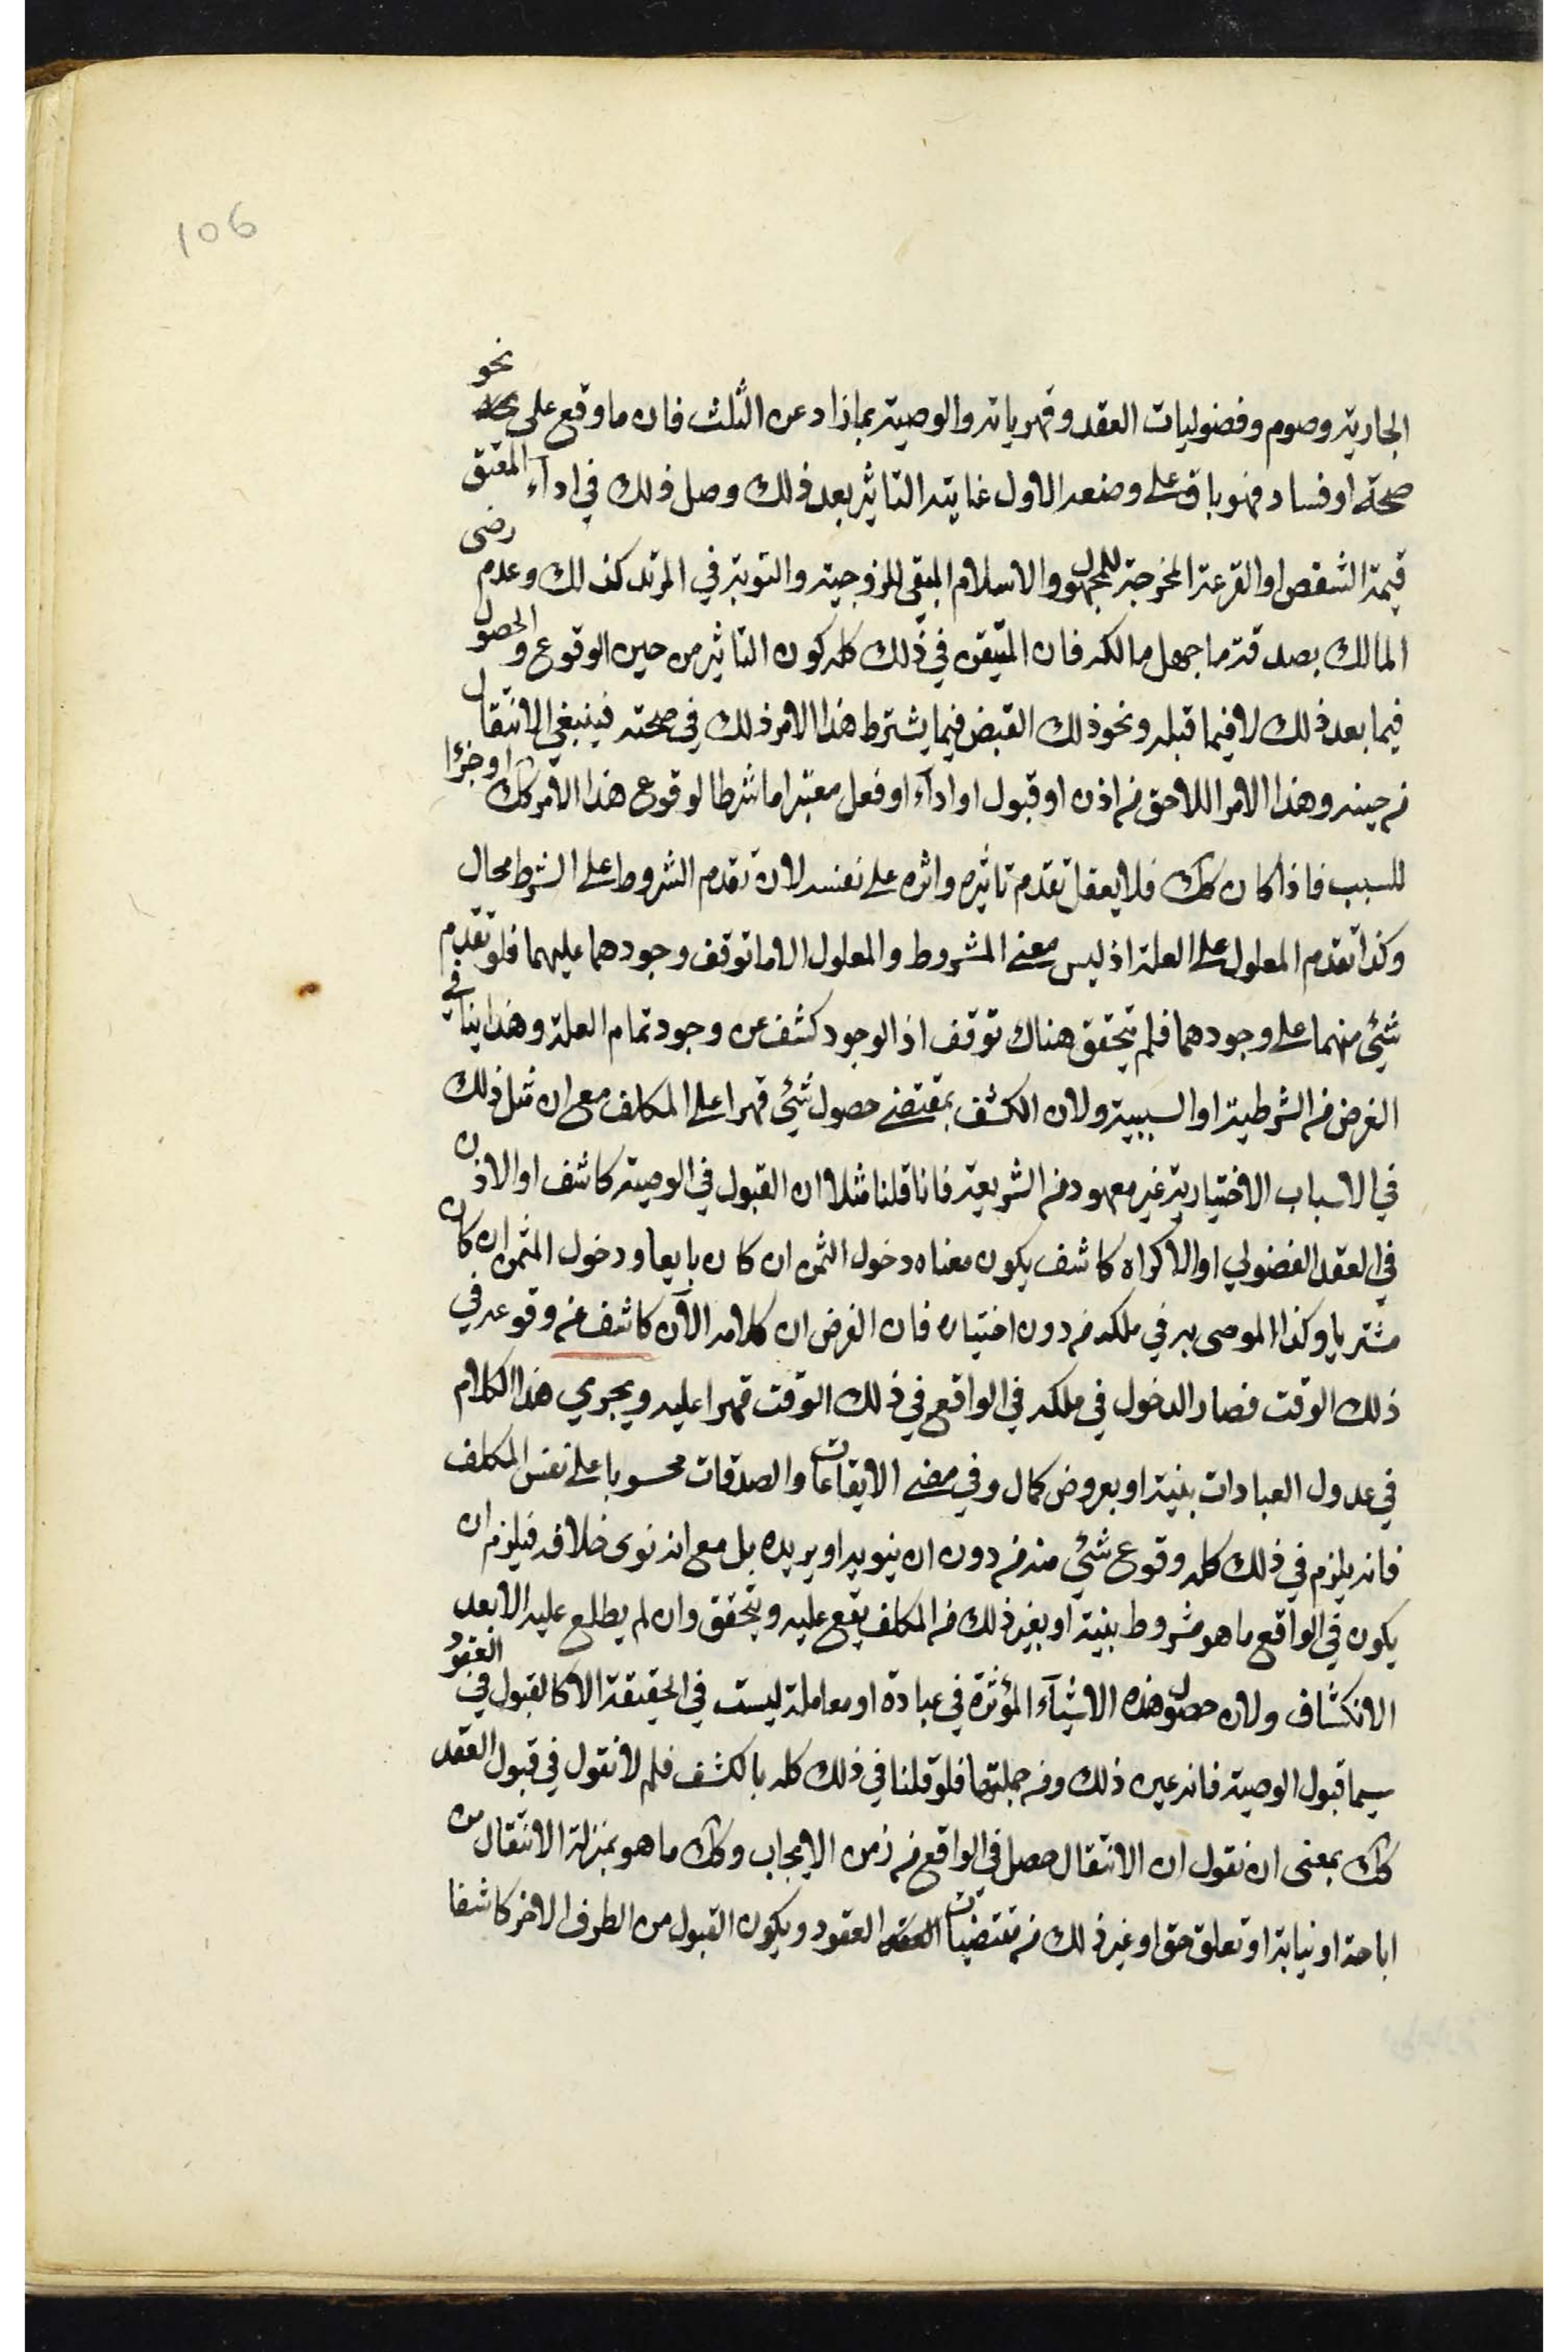 106
الجارية وصوم وفضوليات العقد وقهرياته والوصية بما زاد عن الثلث فان ما وقع على نحو
صحة او فساد فهو باق على وضعه الاول غايته التاثير بعد ذلك وصل ذلك في ادآء المعتق
قيمة الشقص او القرعة المخرجة للمجهول والاسلام المبقي للزوجية والتوبة في المرتد كذلك وعدم رضى
المالك بصدقة ما جهل مالكه فان المتيقن في ذلك كله كون التاثير من حين الوقوع والحصول
فيما بعد ذلك لا فيما قبله ونحو ذلك القبض فيما يشترط هذا الامر ذلك في صحته فينبغي الانتقال
من حينه وهذا الامر اللاحق من اذن او قبول او ادآء او فعل معتبر اما شرطا لوقوع هذا الامر كك او جزءا
للسبب فاذا كان كك فلا يعقل تقدم تاثيره واثره على نفسه لان تقدم الشروط على الشرط محال
وكذا تقدم المعلول على العلة اذ ليس معنى المشروط والمعلول الا ما توقف وجودهما عليهما فلو تقدم
شئ منهما على وجودهما فلم يتحقق هناك توقف اذ الوجود كشف عن وجود تمام العلة وهذا ينافي
الغرض من الشرطية او السببية ولان الكشف بمقتضى حصول شئ قهرا على المكلف مع ان مثل ذلك
في الاسباب الاختيارية غير معهود من الشريعة فانا قلنا مثلا ان القبول في الوصية كاشف او الاذن
في العقد الفضولي او الاكراه كاشف يكون معناه دخول الثمن ان كان بايعا ودخول المثمن ان كان
مشتريا وكذا الموصى به في ملكه من دون اختياره فان الغرض ان كلامه الآن كاشف عن وقوعه في
ذلك الوقت فصار الدخول في ملكه في الواقع في ذلك الوقت قهرا عليه ويجري هذا الكلام
في عدول العبادات بنية او بعروض كمال وفي مضي الايقاعات والصدقات محسوبا على نفس المكلف
فانه يلزم في ذلك كله وقوع شئ منه من دون ان ينويه او يريده بل مع انه نوى خلافه فيلزم ان
يكون في الواقع ما هو مشروط بنية او بغير ذلك من المكلف يقع عليه ويتحقق وان لم يطلع عليه الا بعد
الانكشاف ولان حصول هذه الاشيآء المؤثرة في عبادة او معاملة ليست في الحقيقة الا كالقبول في العقود
سيما قبول الوصية فانه عين ذلك ومن جملتها فلو قلنا في ذلك كله بالكشف فلم لا نقول في قبول العقد
كك بمعنى ان نقول ان الانتقال حصل في الواقع من زمن الايجاب وكك ما هو بمنزلة الانتقال من
اباحة او نيابة او تعلق حق او غير ذلك من مقتضيات العقود ويكون القبول من الطرف الاخر كاشفا